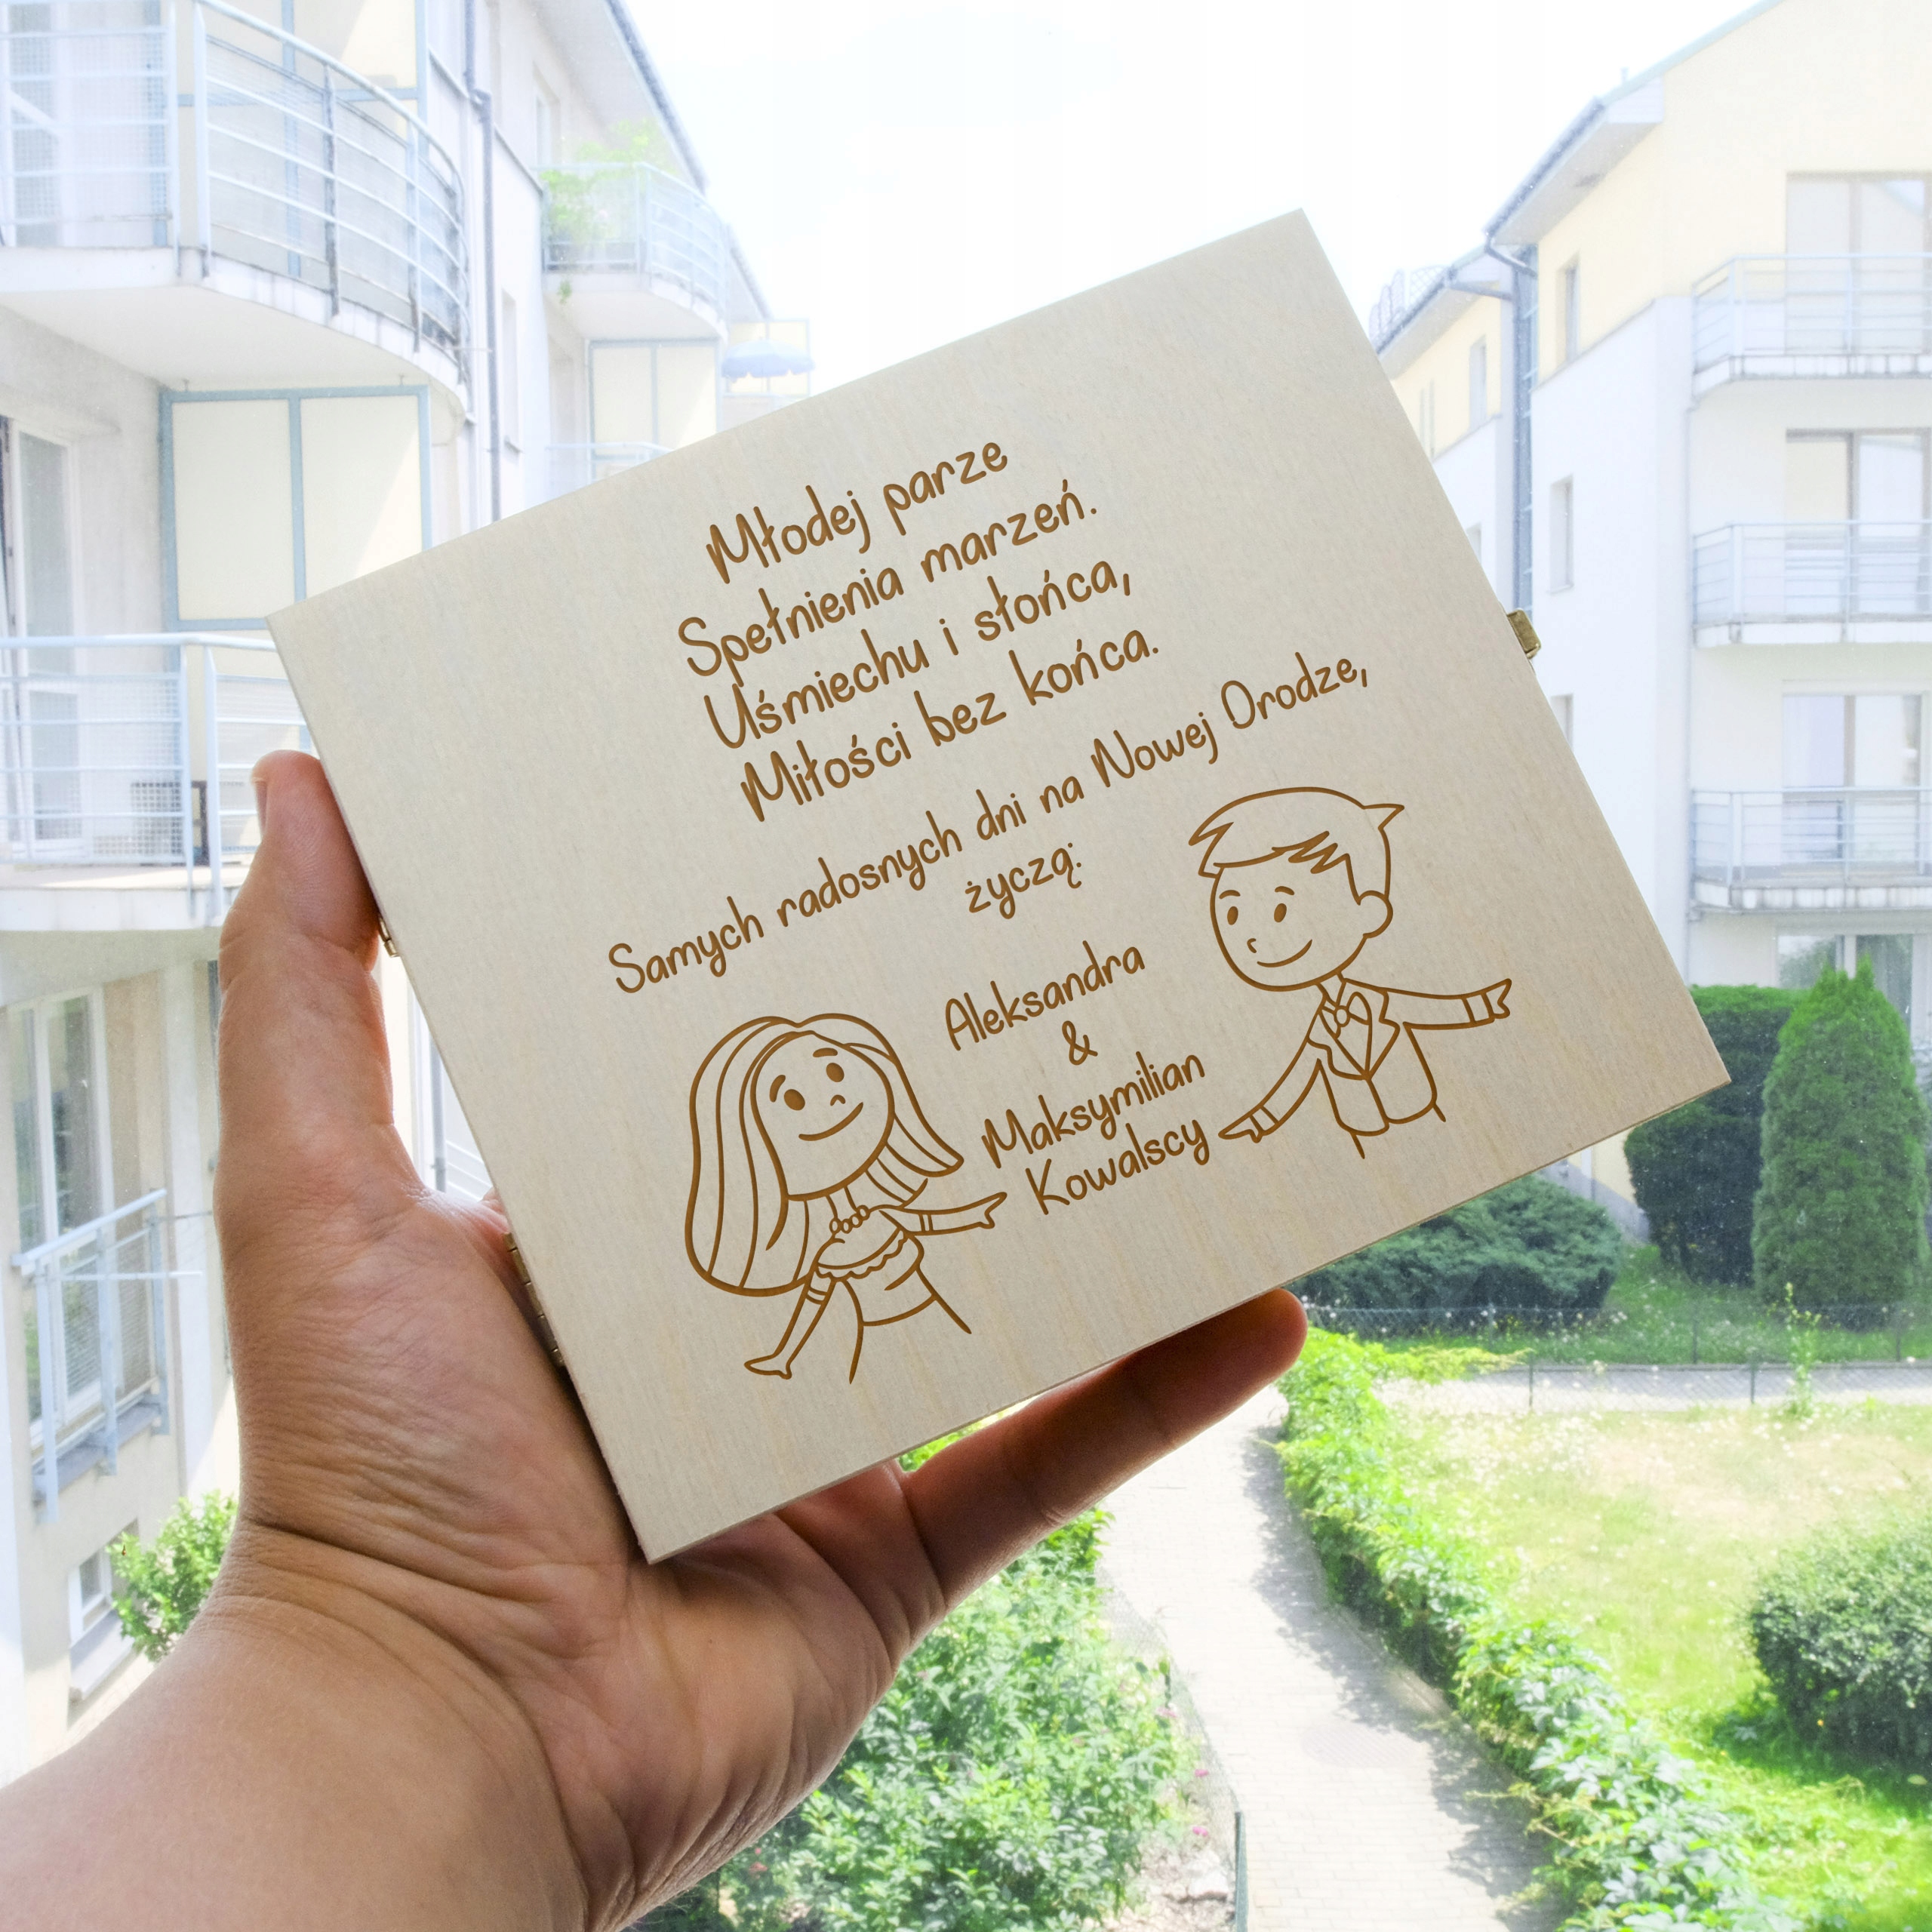 Młodej parze
Spełnienia marzeń.
Uśmiechu i słońca,
Miłości bez końca.
Samych radosnych dni na Nowej Drodze,
życzą:
Aleksandra
&
Maksymilian
Kowalscy